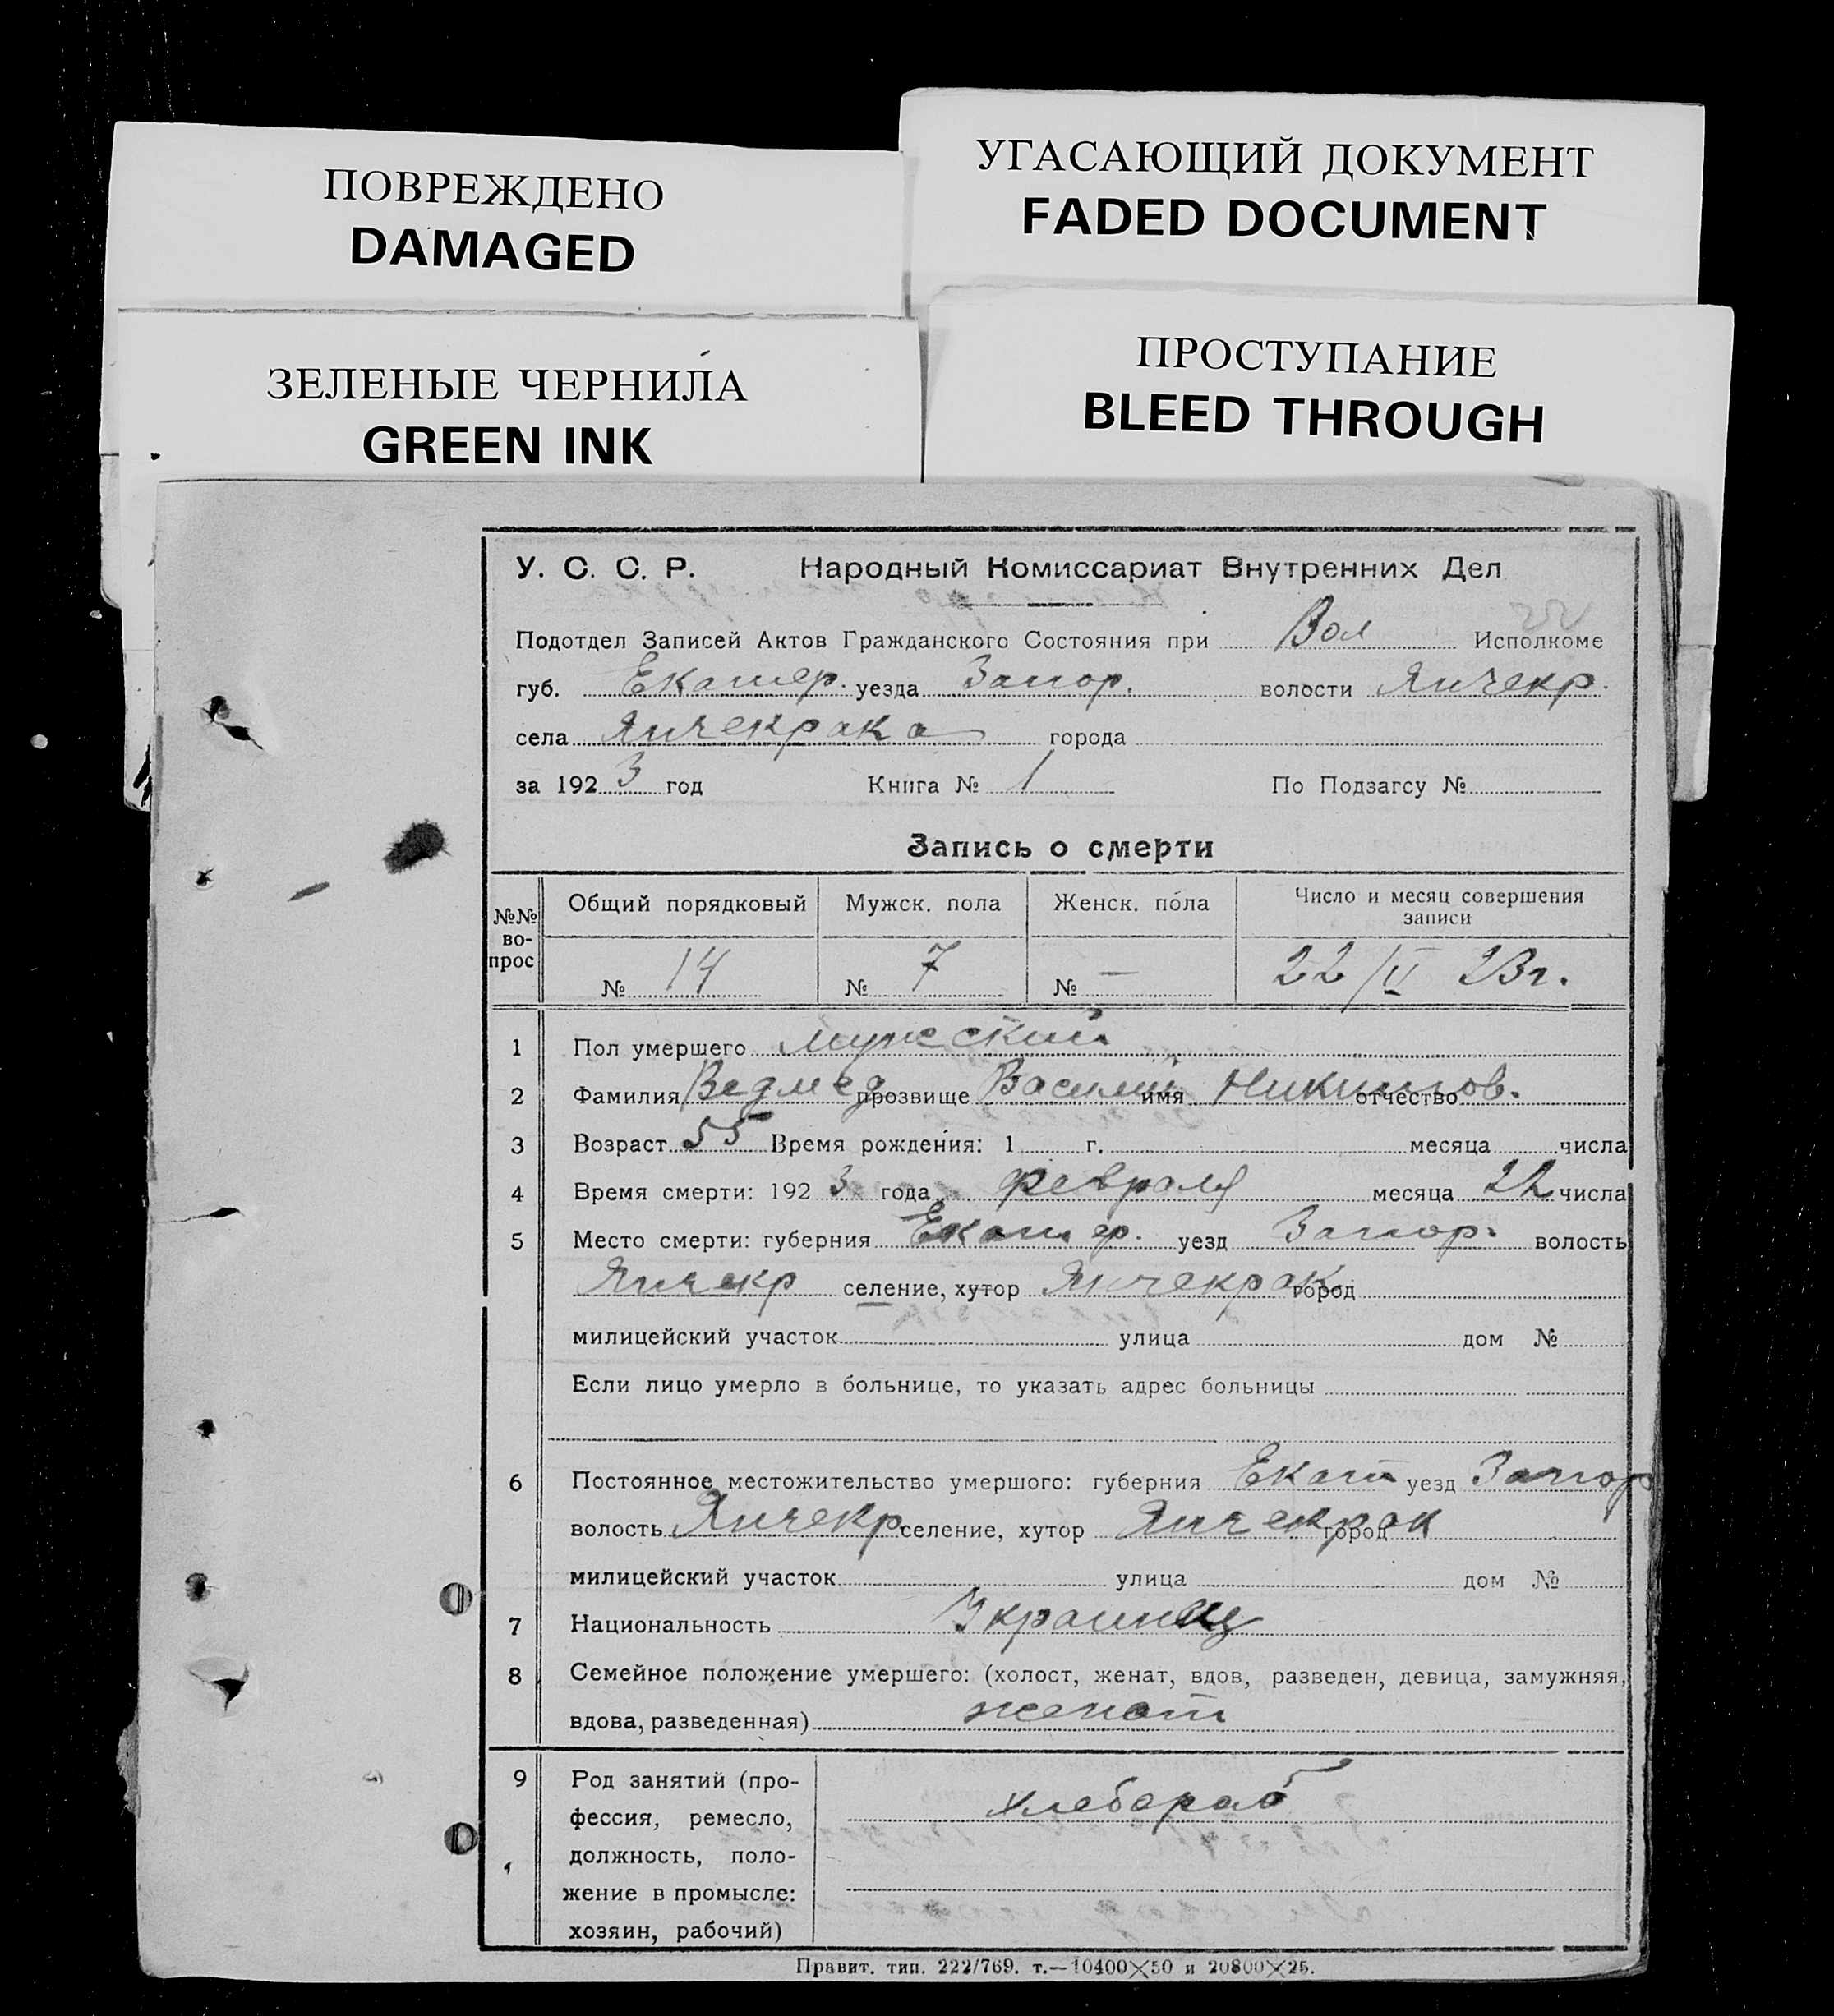 ПОВРЕЖДЕНО
DAMAGED
УГАСАЮЩИЙ ДОКУМЕНТ
FADED DOCUMENT
ЗЕЛЕНЫЕ ЧЕРНИЛА
GREEN INK
ПРОСТУПАНИЕ
BLEED THROUGH
У. С. С. Р. Народный Комиссариат Внутренних Дел
Подотдел Записей Актов Гражданского Состояния при Вол Исполкоме
губ. Екатер. уезда Запор. волости Янчекр.
села Янчекрака города
за 1923 год Книга № 1 По Подзагсу №
Запись о смерти
№№ во-прос Общий порядковый Мужск. пола Женск. пола Число и месяц совершения записи
№ 14 № 7 № — 22/II 23г.
1 Пол умершего мужской
2 Фамилия Ведмед прозвище Василий имя отчество
3 Возраст 55 Время рождения: 1 г. месяца числа
4 Время смерти: 1923 года февраля месяца 22 числа
5 Место смерти: губерния Екатер. уезд Запор. волость
Янчекр селение, хутор Янчекрак город
милицейский участок улица дом №
Если лицо умерло в больнице, то указать адрес больницы
6 Постоянное местожительство умершого: губерния Екат уезд Запор
волость Янчекр селение, хутор Янчекрак город
милицейский участок улица дом №
7 Национальность Украинец
8 Семейное положение умершего: (холост, женат, вдов, разведен, девица, замужняя,
вдова, разведенная) женат
9 Род занятий (про-
фессия, ремесло, хлебороб
должность, поло-
жение в промысле:
хозяин, рабочий)
Правит. тип. 222/769. т.—10400×50 и 20800×25.